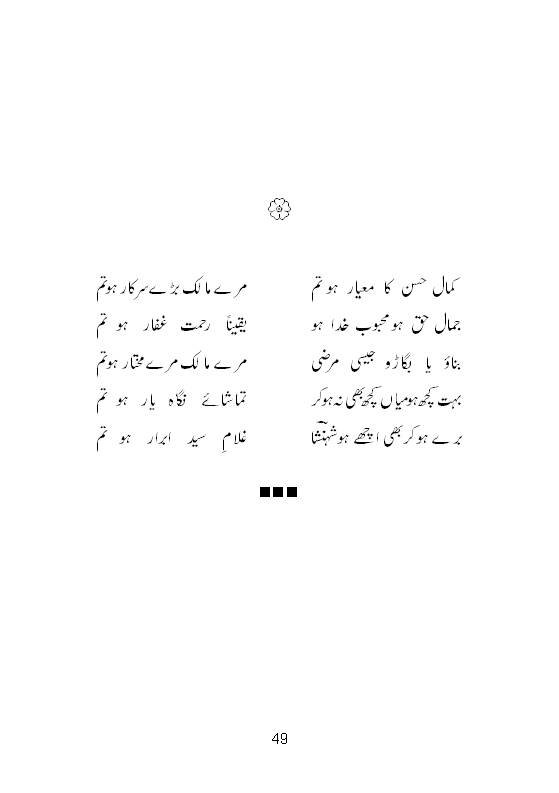 کمال حسن کا معیار ہو تم مرے مالک بڑے سرکار ہو تم
جمال حق ہو محبوب خدا ہو یقیناً رحمت غفار ہو تم
بناؤ یا بگاڑو جیسی مرضی مرے مالک مرے مختار ہو تم
بہت کچھ ہو میاں کچھ بھی نہ ہو کر تماشائے نگاہ یار ہو تم
برے ہو کر بھی اچھے ہو شہنشاؔ غلامِ سید ابرار ہو تم
49